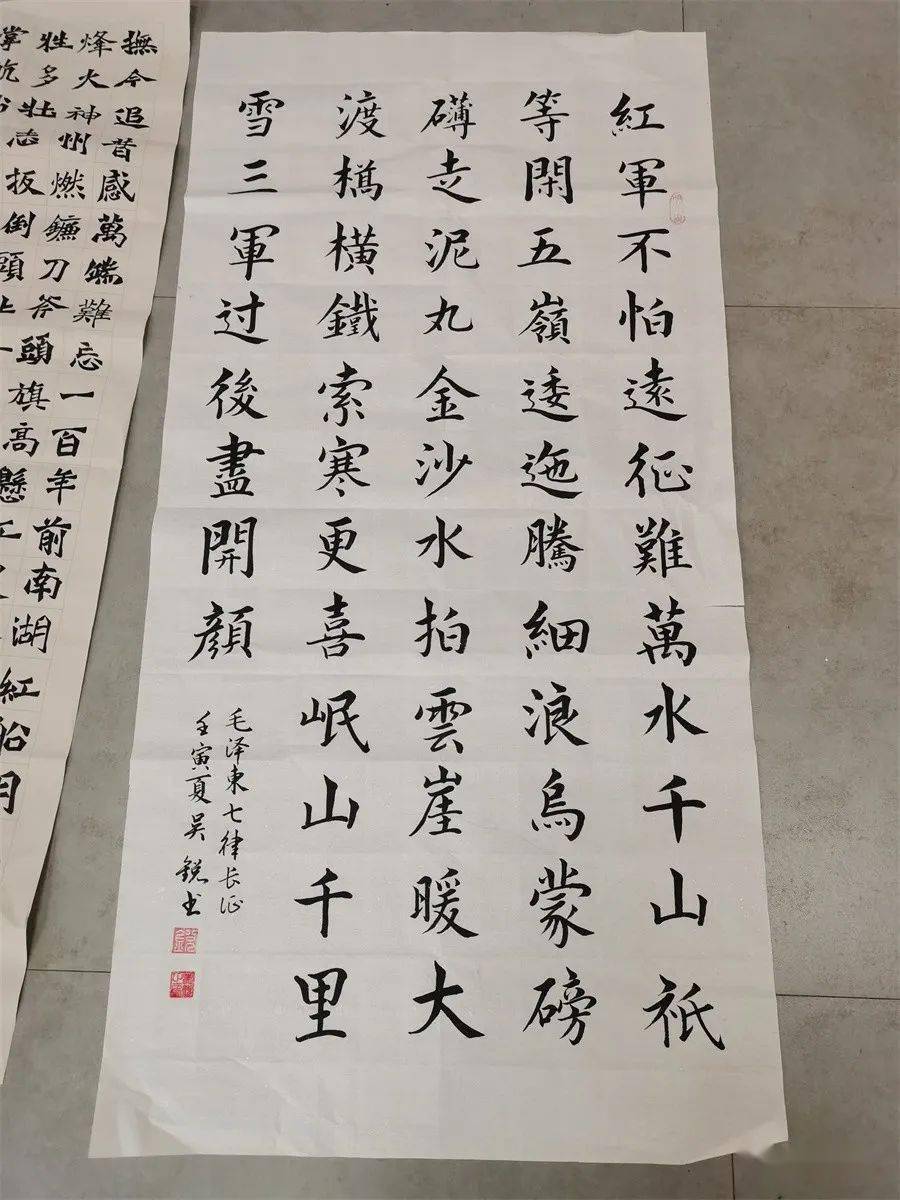 撫今追昔感萬端難忘一百年前南湖紅船月
烽火神州燃鐮刀斧頭旗高懸工
牲多壯志扳倒頭上
掌
紅軍不怕遠征難萬水千山祇
等閑五嶺逶迤騰細浪烏蒙磅
礴走泥丸金沙水拍雲崖暖大
渡橋横鐵索寒更喜岷山千里
雪三軍过後盡開顔
毛泽東七律长征
壬寅夏吴锐书